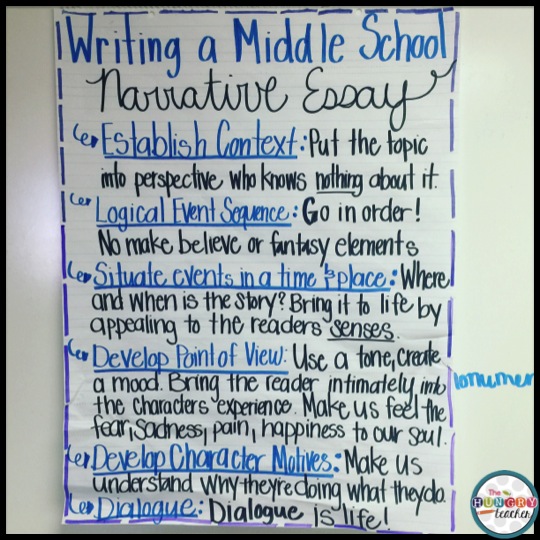 Writing a Middle School
Narrative Essay
Establish Context: Put the topic
into perspective who knows nothing about it.
Logical Event Sequence: Go in order!
No make believe or fantasy elements
Situate events in a time & place: Where
and when is the story? Bring it to life by
appealing to the readers' senses.
Develop Point of View: Use a tone, create
a mood. Bring the reader intimately into
the characters' experience. Make us feel the
fear, sadness, pain, happiness to our soul.
Develop Character Motives: Make us
understand why they're doing what they do.
Dialogue: Dialogue is life!
The
HUNGRY
teacher